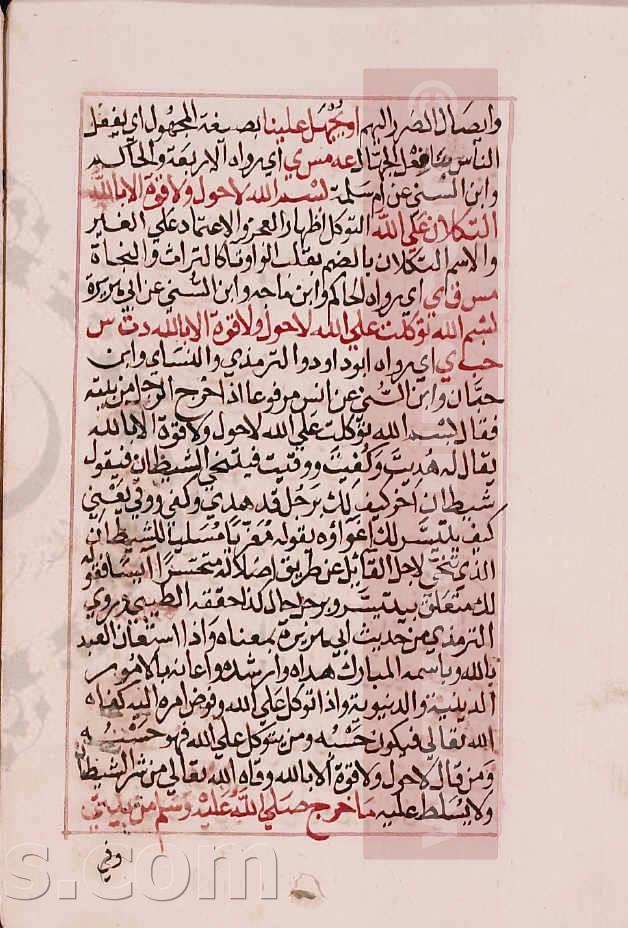 وايصال الضرر اليهم او يُجهَل علينا بصيغة المجهول اي يفعل
الناس بنا فعل الجهال عه مس ي اي رواه الاربعة والحاكم
وابن السني عن ام سلمة بسم الله لا حول ولا قوة الا بالله
التكلان على الله التوكل اظهار العجز والاعتماد على الغير
والاسم التكلان بالضم بقلب الواو تا كالتراث والتجاة
مس ق ي اي رواه الحاكم وابن ماجه وابن السني عن ابي هريرة
بسم الله توكلت على الله لا حول ولا قوة الا بالله د ت س
حب ي اي رواه ابو داود والترمذي والنساي وابن
حبان وابن السني عن انس مرفوعا اذا خرج الرجل من بيته
فقال بسم الله توكلت على الله لا حول ولا قوة الا بالله
يقال له هديت وكفيت ووقيت فيتنحى الشيطان فيقول
شيطان اخر كيف لك برجل قد هدي وكفى ووقى يعني
كيف يتيسر لك اغواؤه يقوله معزيا مسليا للشيطان
الذي تنحى لاجل القائل عن طريق اضلاله متحسرا آيسا فقوله
لك متعلق بيتيسر وبرجل حال كذا حققه الطيبي وروي
الترمذي من حديث ابي هريرة بمعناه واذا استعان العبد
بالله وباسمه المبارك هداه وارشده واعانه بالامور
الدينية والدنيوية واذا توكل على الله وفوض امره اليه كفاه
الله تعالى فيكون حسبه ومن يتوكل على الله فهو حسبه
ومن قال لا حول ولا قوة الا بالله وقاه الله تعالى من شر الشيطان
ولا يسلط عليه ما خرج صلى الله عليه وسلم من بيتي
وفي
s.com